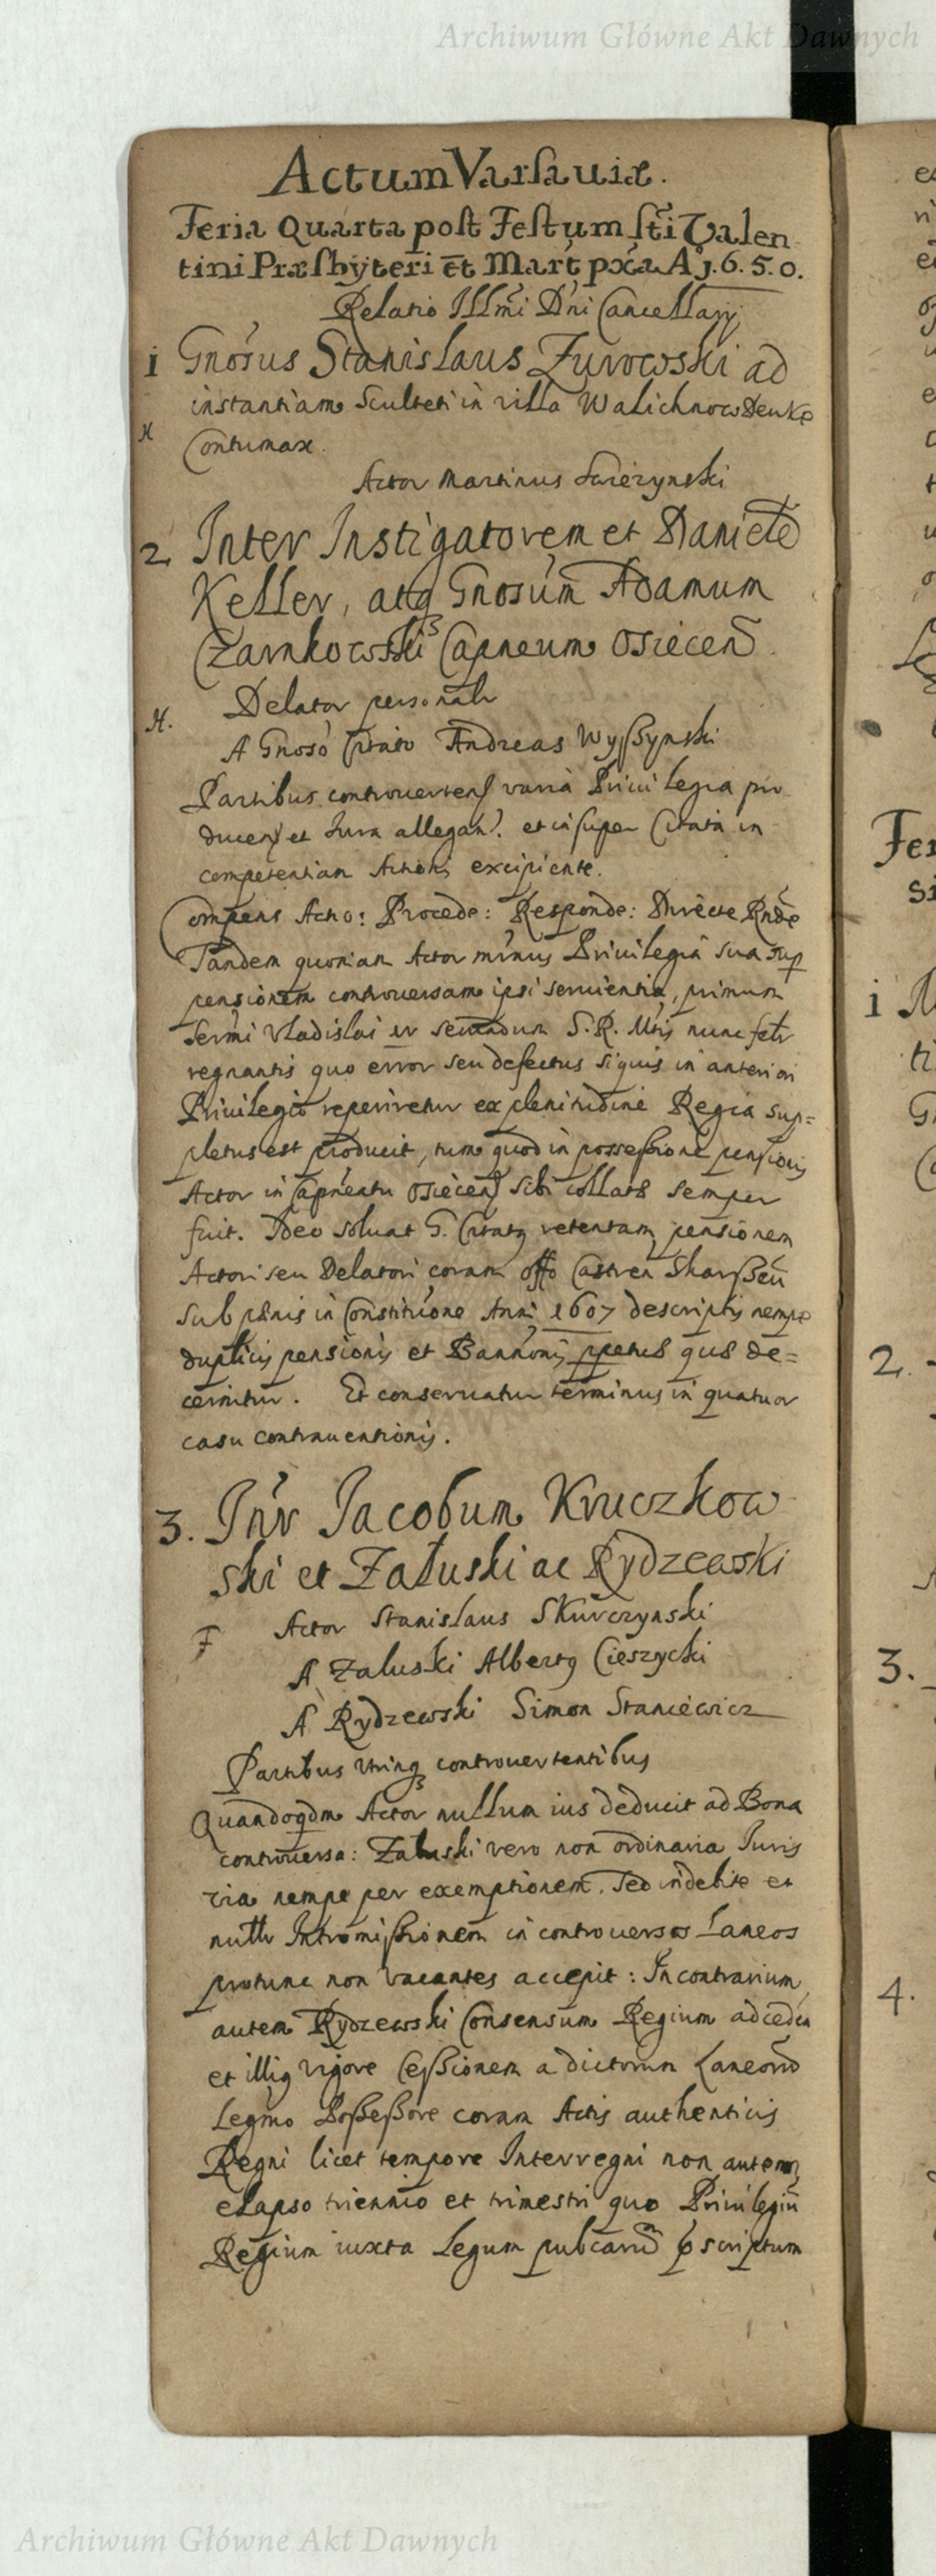 Archiwum Główne Akt Dawnych
Actum Varsaviæ.
Feria Quarta post Festum sti Valen
tini Præsbyteri et Mart pxa A 1.6.5.0.
Relatio Illmi Dni Cancellarij
1 Gnosus Stanislaus Zurowski ad
instantiam Sculteti in villa Walichnow
H
Contumax.
Actor Martinus Swiezynski
2 Inter Instigatorem et Daniele
Keller, atq Gnosum Adamum
Czarnkowski Capneum Osiecen.
Delator personalr
H.
A Gnoso Citato Andreas Wyssynski
Partibus controverten varia Privilegia pro
ducen et Jura allegan. et insuper Citata in
competentiam Actionis excipiente.
Compens Actio: Procede: Responde: Directe Rnde
Tandem quoniam Actor minus Privilegia sua sup
pensionem controversam ipsi servientia, primum
Sermi Vladislai IV secundum S. R. Mtis nunc felr
regnantis quo error seu defectus siquis in anteriori
Privilegio reperiretur ex plenitudine Regia sup=
pletus est producit, tum quod in possessione pensionis
Actor in Capneatu Osiecen sibi collata semper
fuit. Ideo solvat G. Citatq retentam pensionem
Actori seu Delatori coram offo Castren
sub pænis in Constitutione Anni 1607 descriptis nempe
duplicis pensionis et Bannonis ppetuæ quæ de=
cernitur. Et conservatur terminus in quatuor
casu contraventionis.
3. Intr Jacobum Kruczkow
ski et Załuski ac Rydzewski
Actor Stanislaus Skurczynski
F
A Zaluski Albertq Cieszycki
A Rydzewski Simon Stancewicz
Partibus utrinq controvertentibus
Quandoqdm Actor nullum ius deducit ad Bona
controversa: Zaluski vero non ordinaria Iuris
via nempe per exemptionem. Sed indebite et
nullr Intromissionem in controversos Laneos
protunc non vacantes accepit: In contrarium
autem Rydzewski Consensum Regium ad cedendum
et illiq vigore Cessionem a dictorum Laneorum
Legmo Possessore coram Actis authenticis
Regni licet tempore Interregni non autem
elapso triennio et trimestri quo Privilegiu
Regium iuxta Legum pubcaru scriptum
Archiwum Główne Akt Dawnych